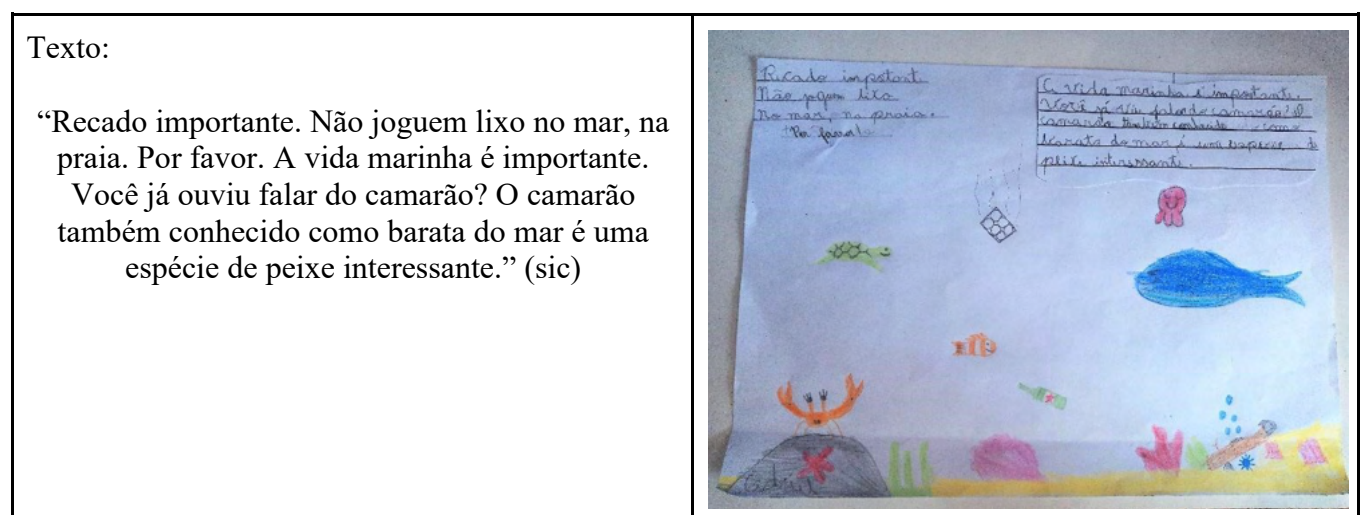 Texto:
“Recado importante. Não joguem lixo no mar, na
praia. Por favor. A vida marinha é importante.
Você já ouviu falar do camarão? O camarão
também conhecido como barata do mar é uma
espécie de peixe interessante.” (sic)
Não
No mar, na praia.
Por favor!
A vida marinha é importante.
Você já falar do camarão? O
camarão
barata do mar é uma especie de
peixe interessante.